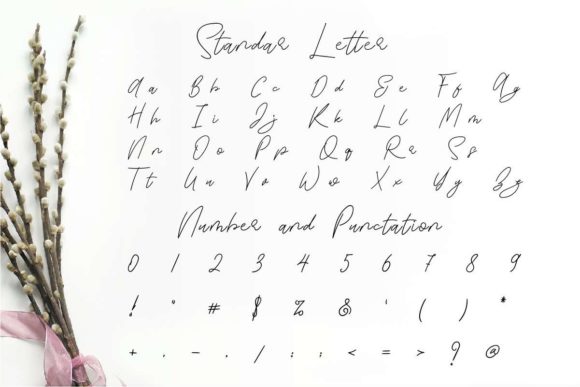 Standar Letter
Aa Bb Cc Dd Ee Ff Gg
Hh Ii Jj Kk Ll Mm
Nn Oo Pp Qq Rr Ss
Tt Uu Vv Ww Xx Yy Zz
Number and Punctation
0 1 2 3 4 5 6 7 8 9
! " # $ % & ' ( ) *
+ , - . / : ; < = > ? @